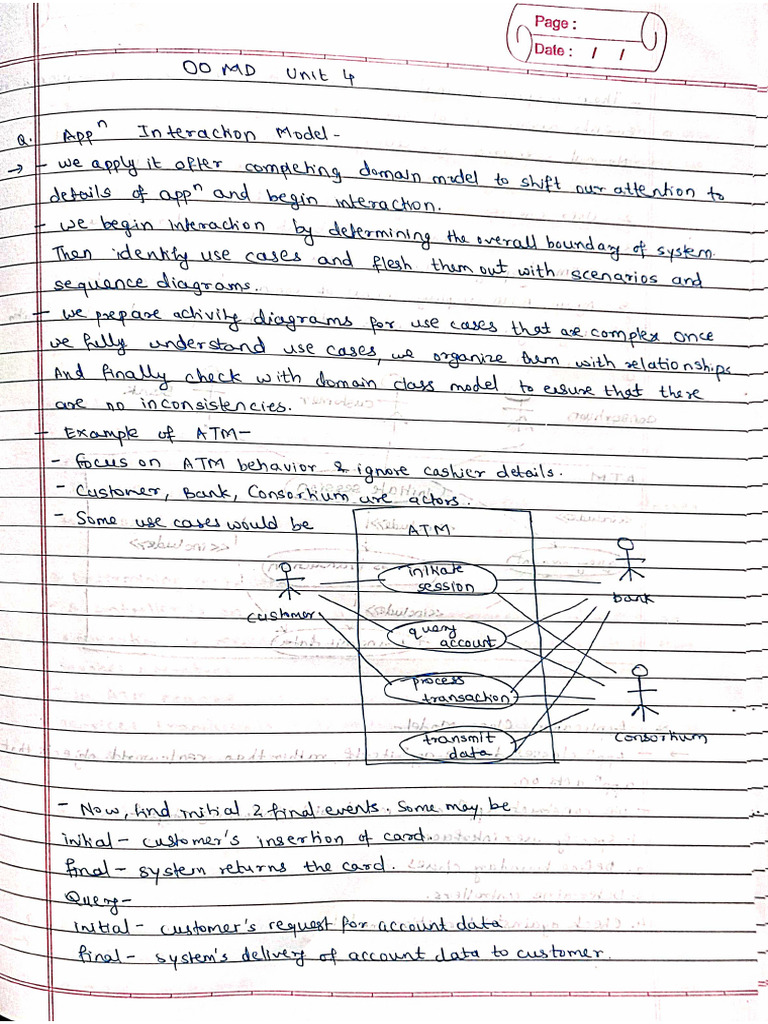 Page :
Date : / /
OOMD Unit 4
Q. Appⁿ Interaction Model-
→ - we apply it after completing domain model to shift our attention to
details of appⁿ and begin interaction.
- we begin interaction by determining the overall boundary of system.
Then identify use cases and flesh them out with scenarios and
sequence diagrams.
- we prepare activity diagrams for use cases that are complex once
we fully understand use cases, we organize them with relationships
And finally check with domain class model to ensure that there
are no inconsistencies.
- Example of ATM-
- Focus on ATM behavior & ignore cashier details.
- Customer, Bank, Consortium are actors.
- Some use cases would be
ATM
initiate
session
bank
customer
query
account
process
transaction
transmit
data
consortium
- Now, find initial & final events. Some may be
initial- customer's insertion of card.
final- system returns the card.
Query-
initial- customer's request for account data
final- system's delivery of account data to customer.